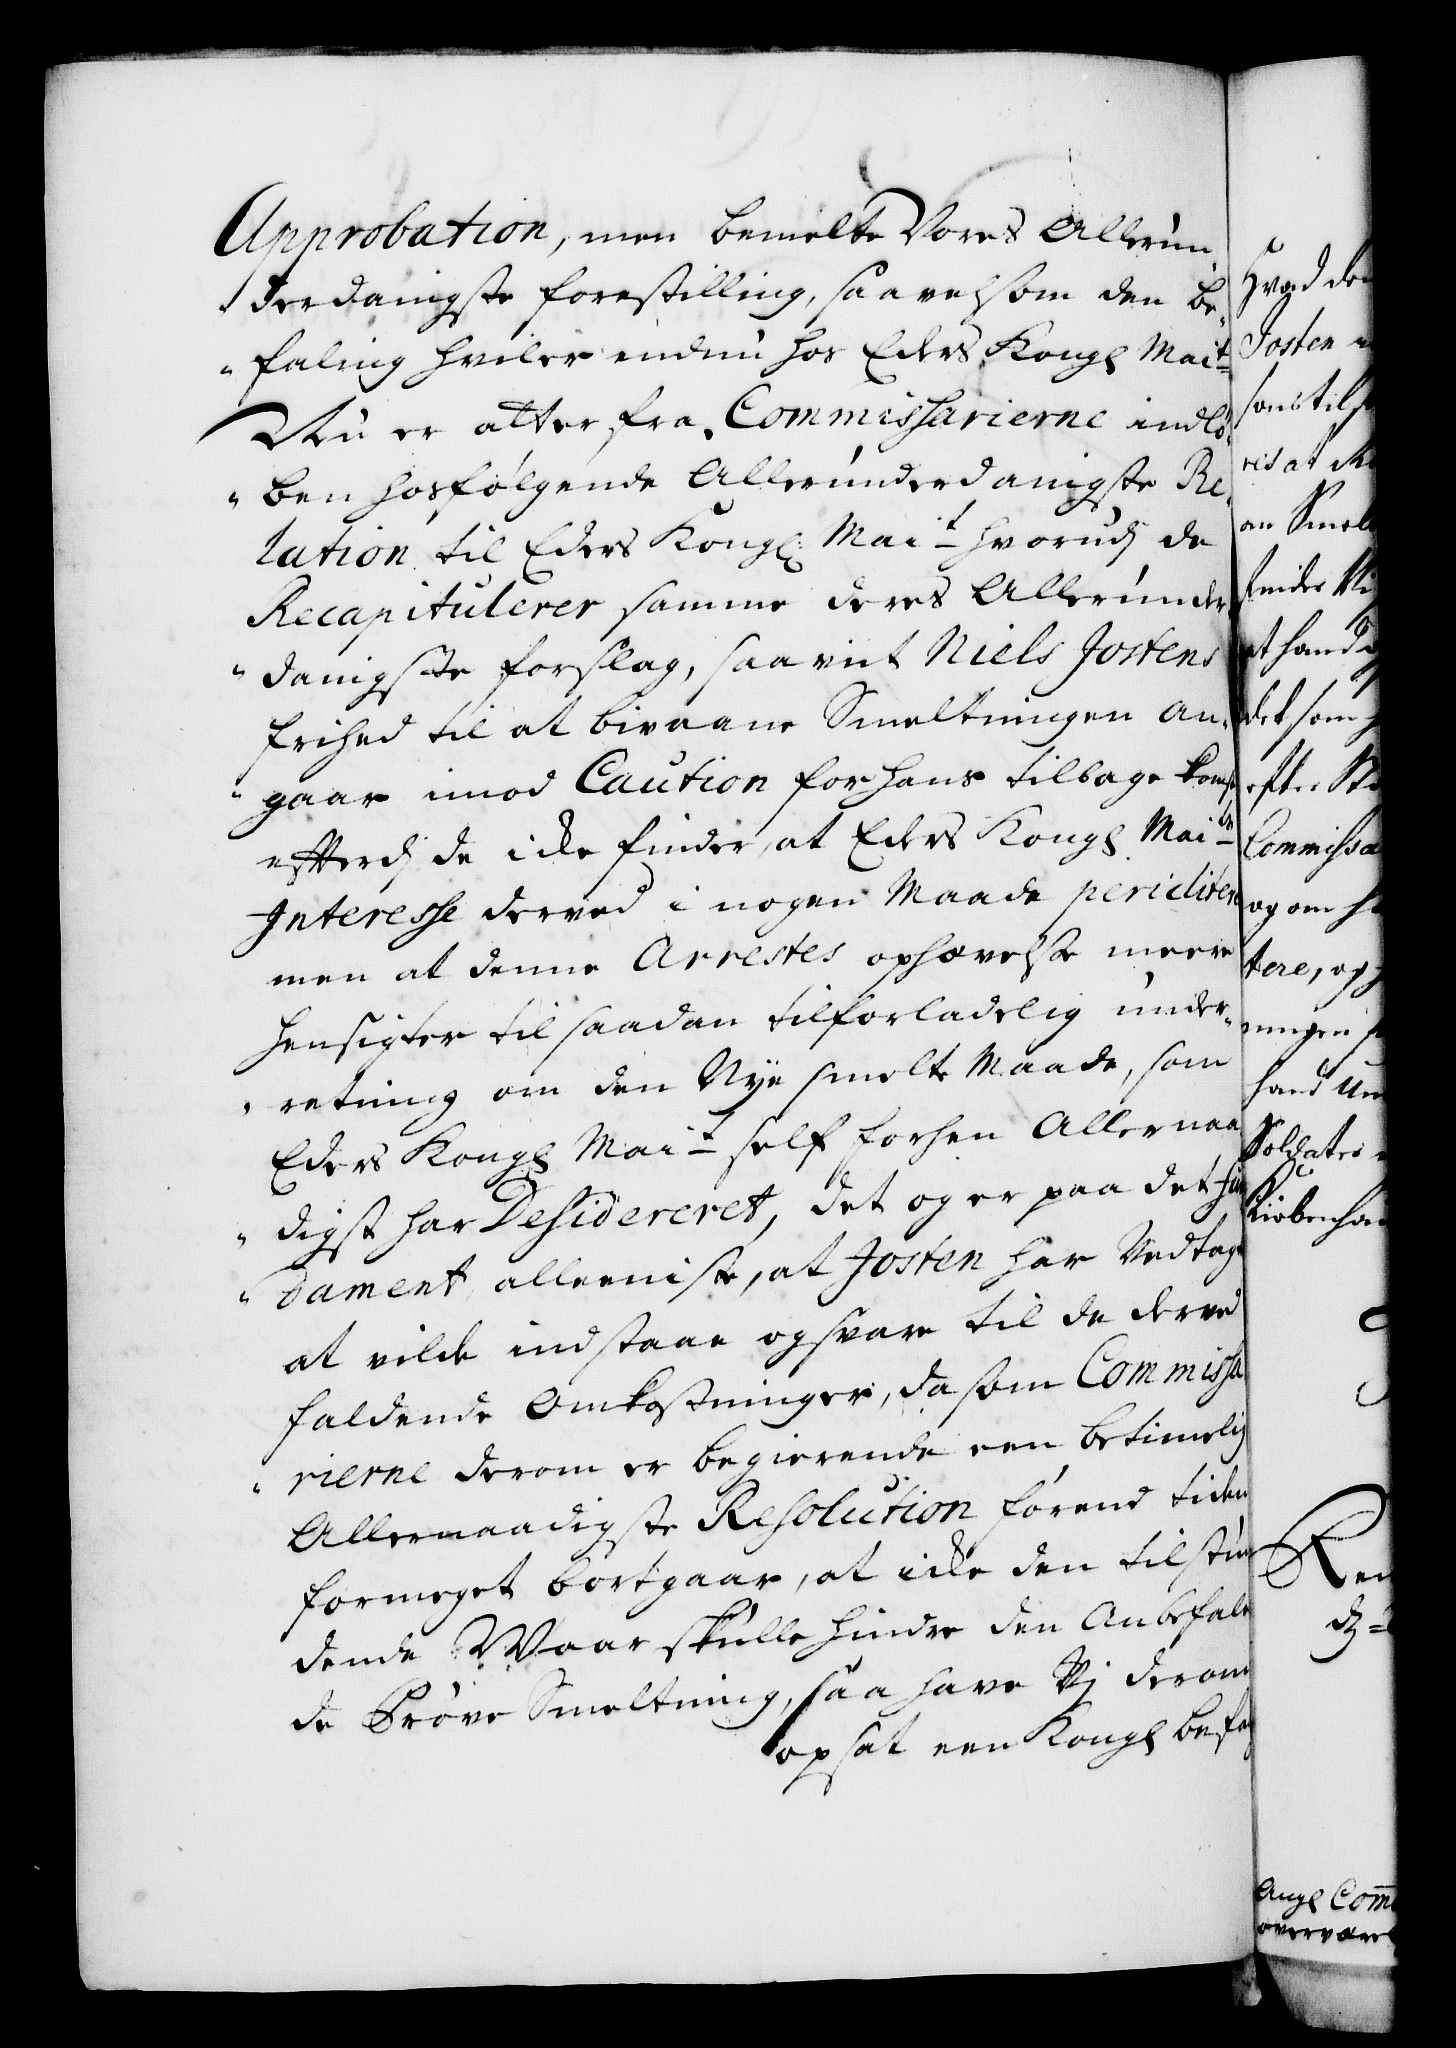 Approbation, men bemelte Vores Allerun¬
derdanigste forestilling, saavelsom den be¬
faling hviler endnu hos Eders Kongl Mait
Nu er atter fra Commissarierne indlø¬
ben hosfølgende Allerunderdanigste Re¬
lation til Eders Kongl: Mait hvorudj de
Recapitulerer samme deres Allerunder¬
danigste forslag, saavit Niels Jostens
frihed til at bivaane Smeltningen an¬
gaar imod Caution for hans tilbage komst,
efterdj de icke finder, at Eders Kongl Maits
Interesse derved i nogen Maade periclitere
men at denne Arrestes ophævelse meere
hensigter til saadan tilforladelig under¬
retning om den Nye smelte Maade, som
Eders Kongl Mait self forhen Allernaa
digst har Desidereret, det og er paa det fun
dament alleeniste, at Josten har Vedtaget
at vilde indstaae og svare til de derved
faldende Omkostninger, da som Commissa
rierne derom er begierende een betimelig
Allernaadigste Resolution førend tiden
formeget bortgaar, at icke den tilstun
dende Waar skulle hindre den Anbefale
de Prøve Smeltning, saa have Vj derom
opsat een Kongl befal
Hvad den
Josten
sons tilf
ved at
an Smelt
finder Vi
at hand
det som
efter
Commissa
og om
tere, og
ningen
hand
Soldater
Kiøbenha
Ren
Angl Comm
overvære